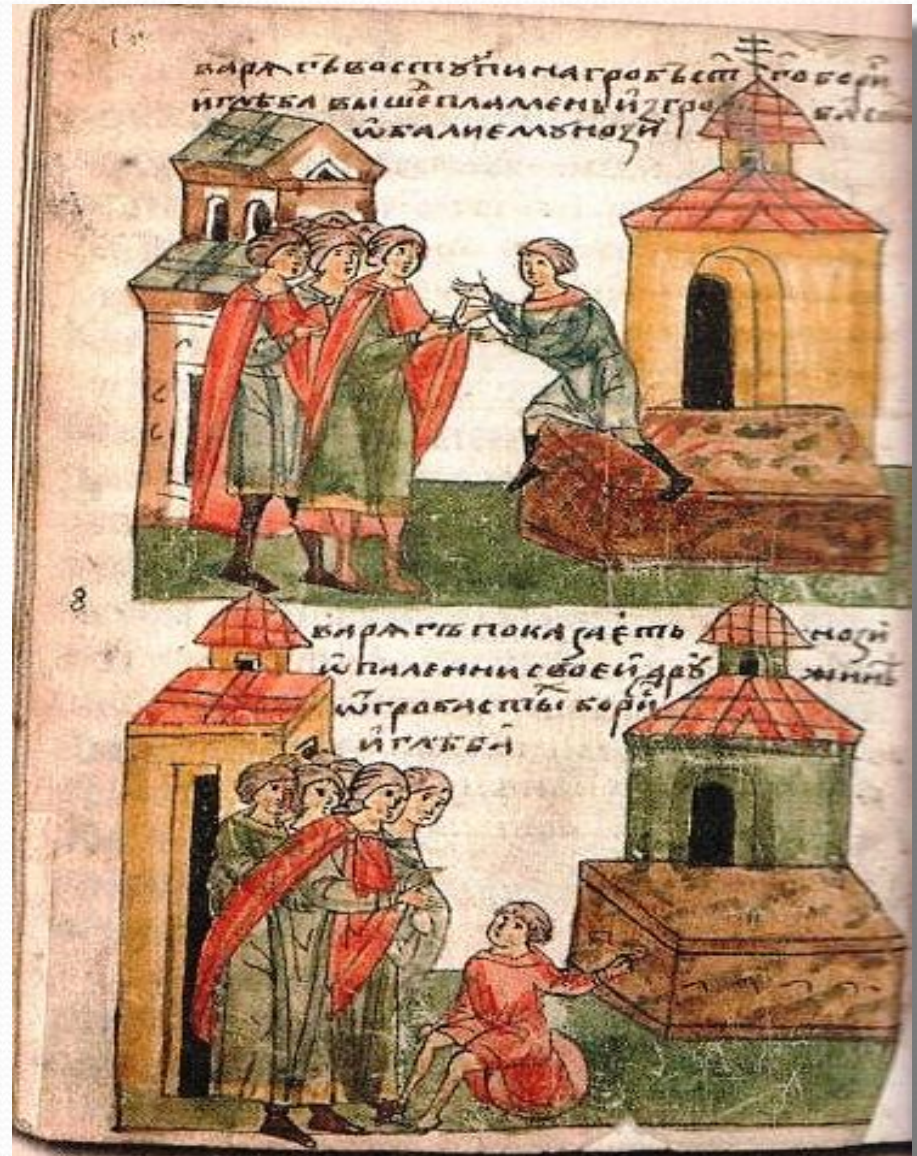 варѧгъ воступи на гробъ ст҃го бори
и глѣба вышеⷣ пламень изгро ба
ѡпали ему нози
варѧгъ показаеть нози
ѡпаленни своеи дру жинѣ
ѿ гроба ст҃ы бори
и глѣба